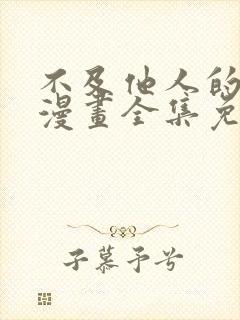 不及他人的
漫畫全集免
子慕予兮